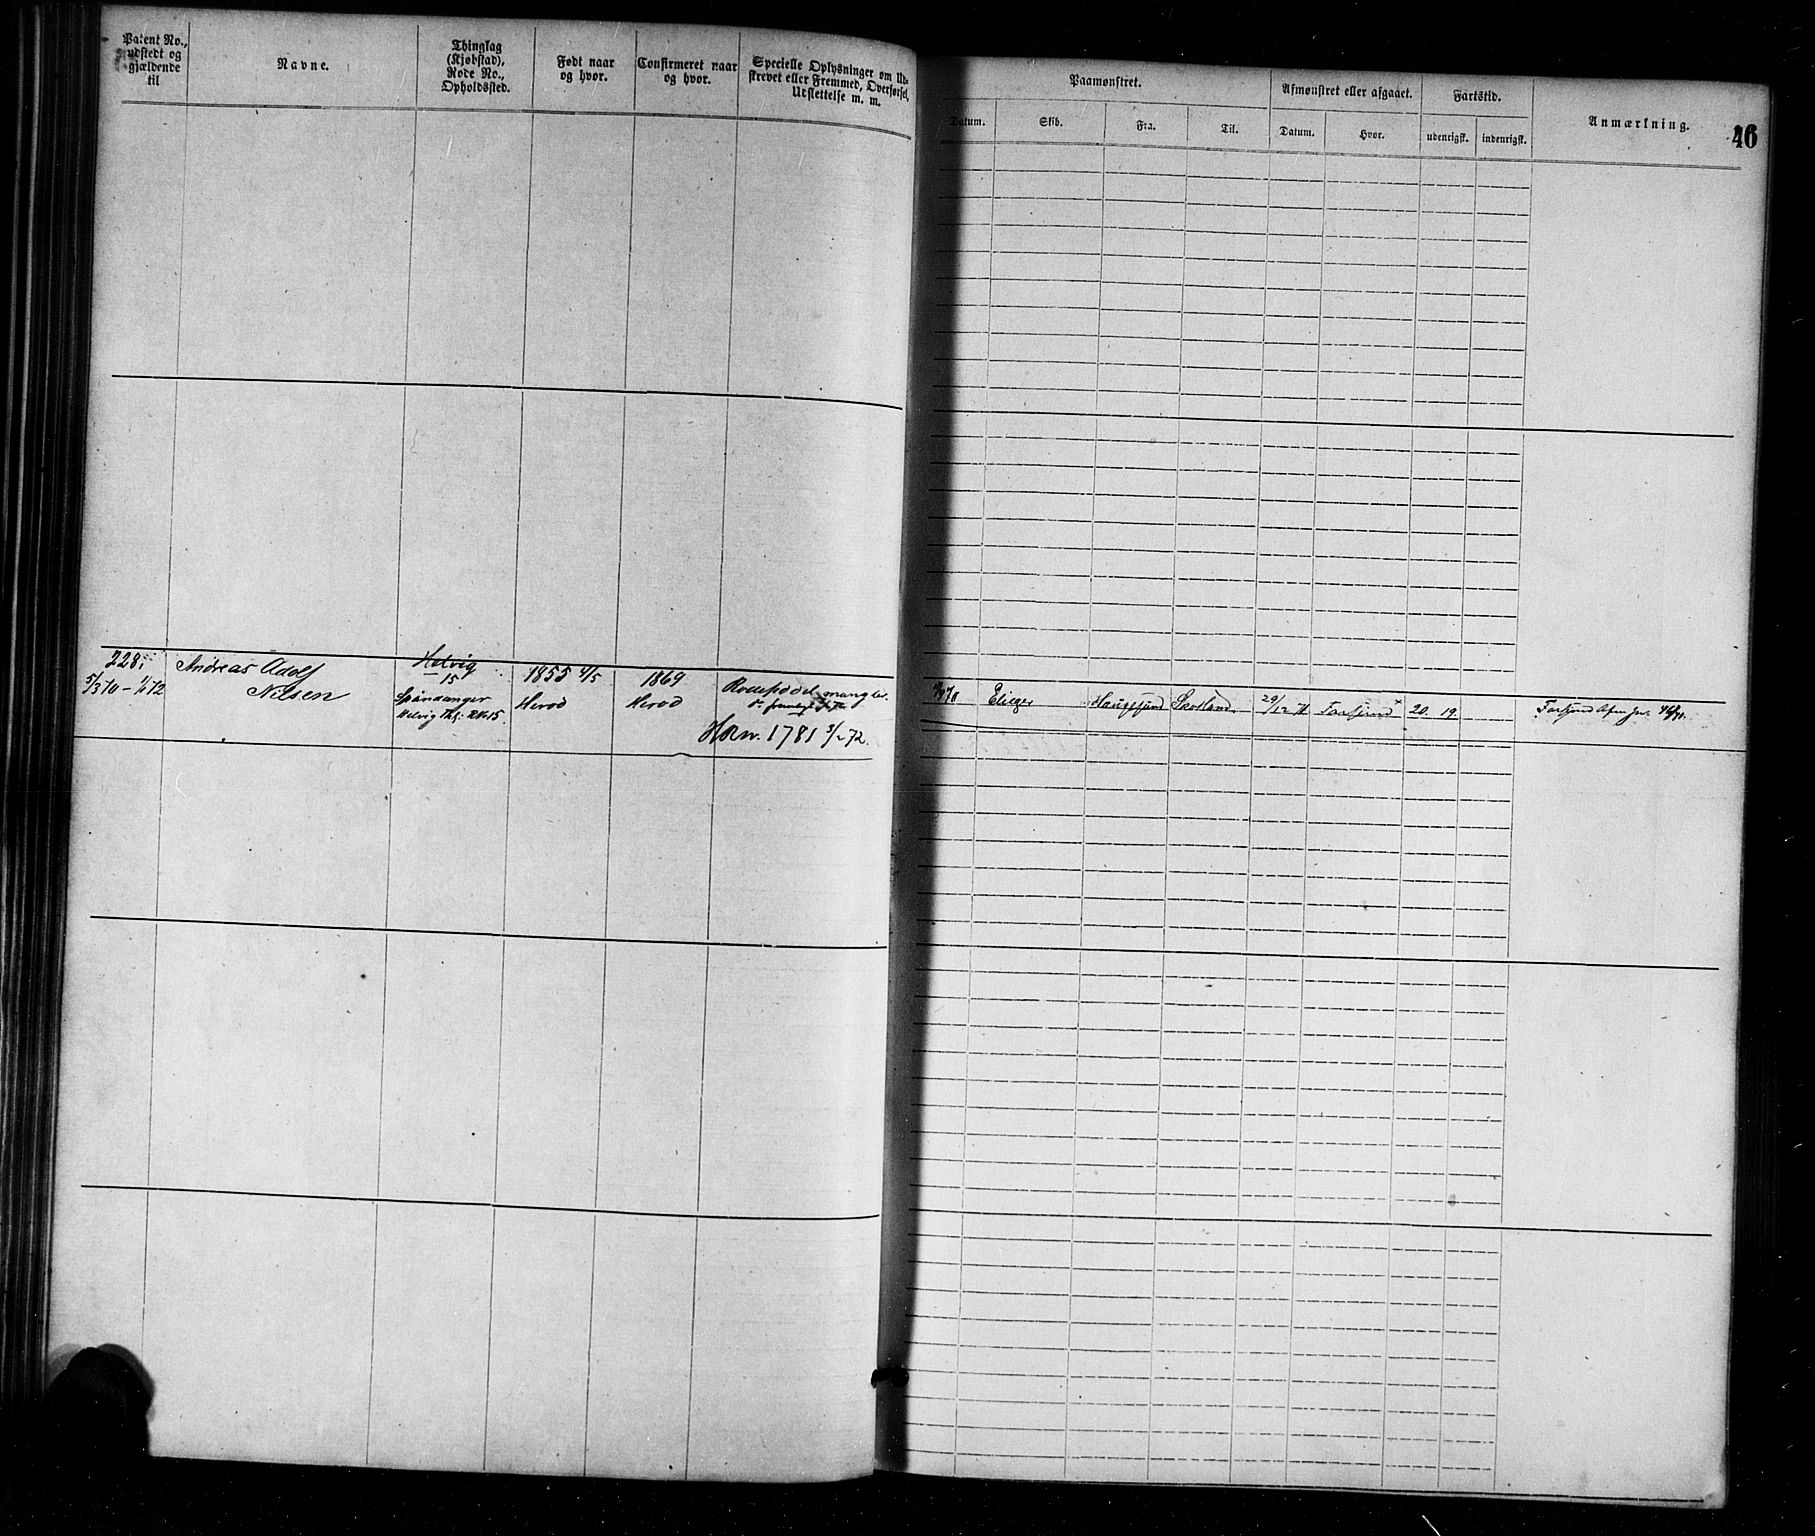 Patent No., udstedt og gjældende til
Navne.
Thinglag (Kjøbstad), Rode No., Opholdssted.
Født naar og hvor.
Confirmeret naar og hvor.
Specielle Oplysninger om Udskrevet eller Fremmed, Overførsel, Udslettelse m. m.
Paamønstret.
Afmønstret eller afgaaet.
Fartstid.
Anmærkning.
46
Datum.
Skib.
Fra.
Til.
Datum.
Hvor.
udenrigsk.
indenrigsk.
228.
5/3 70 - 1/1 72
Andreas Adolf
Nilsen
Helvig
15
Spindsanger
Helvig Thl. RN 15.
1855 4/5
Herod
1869
Herod
Rodeseddel mangler.
HRN. 1781 3/2 72.
Eliezer
Haugesund
Skotland
29/12 71
Farsund
20.
19.
Farsund